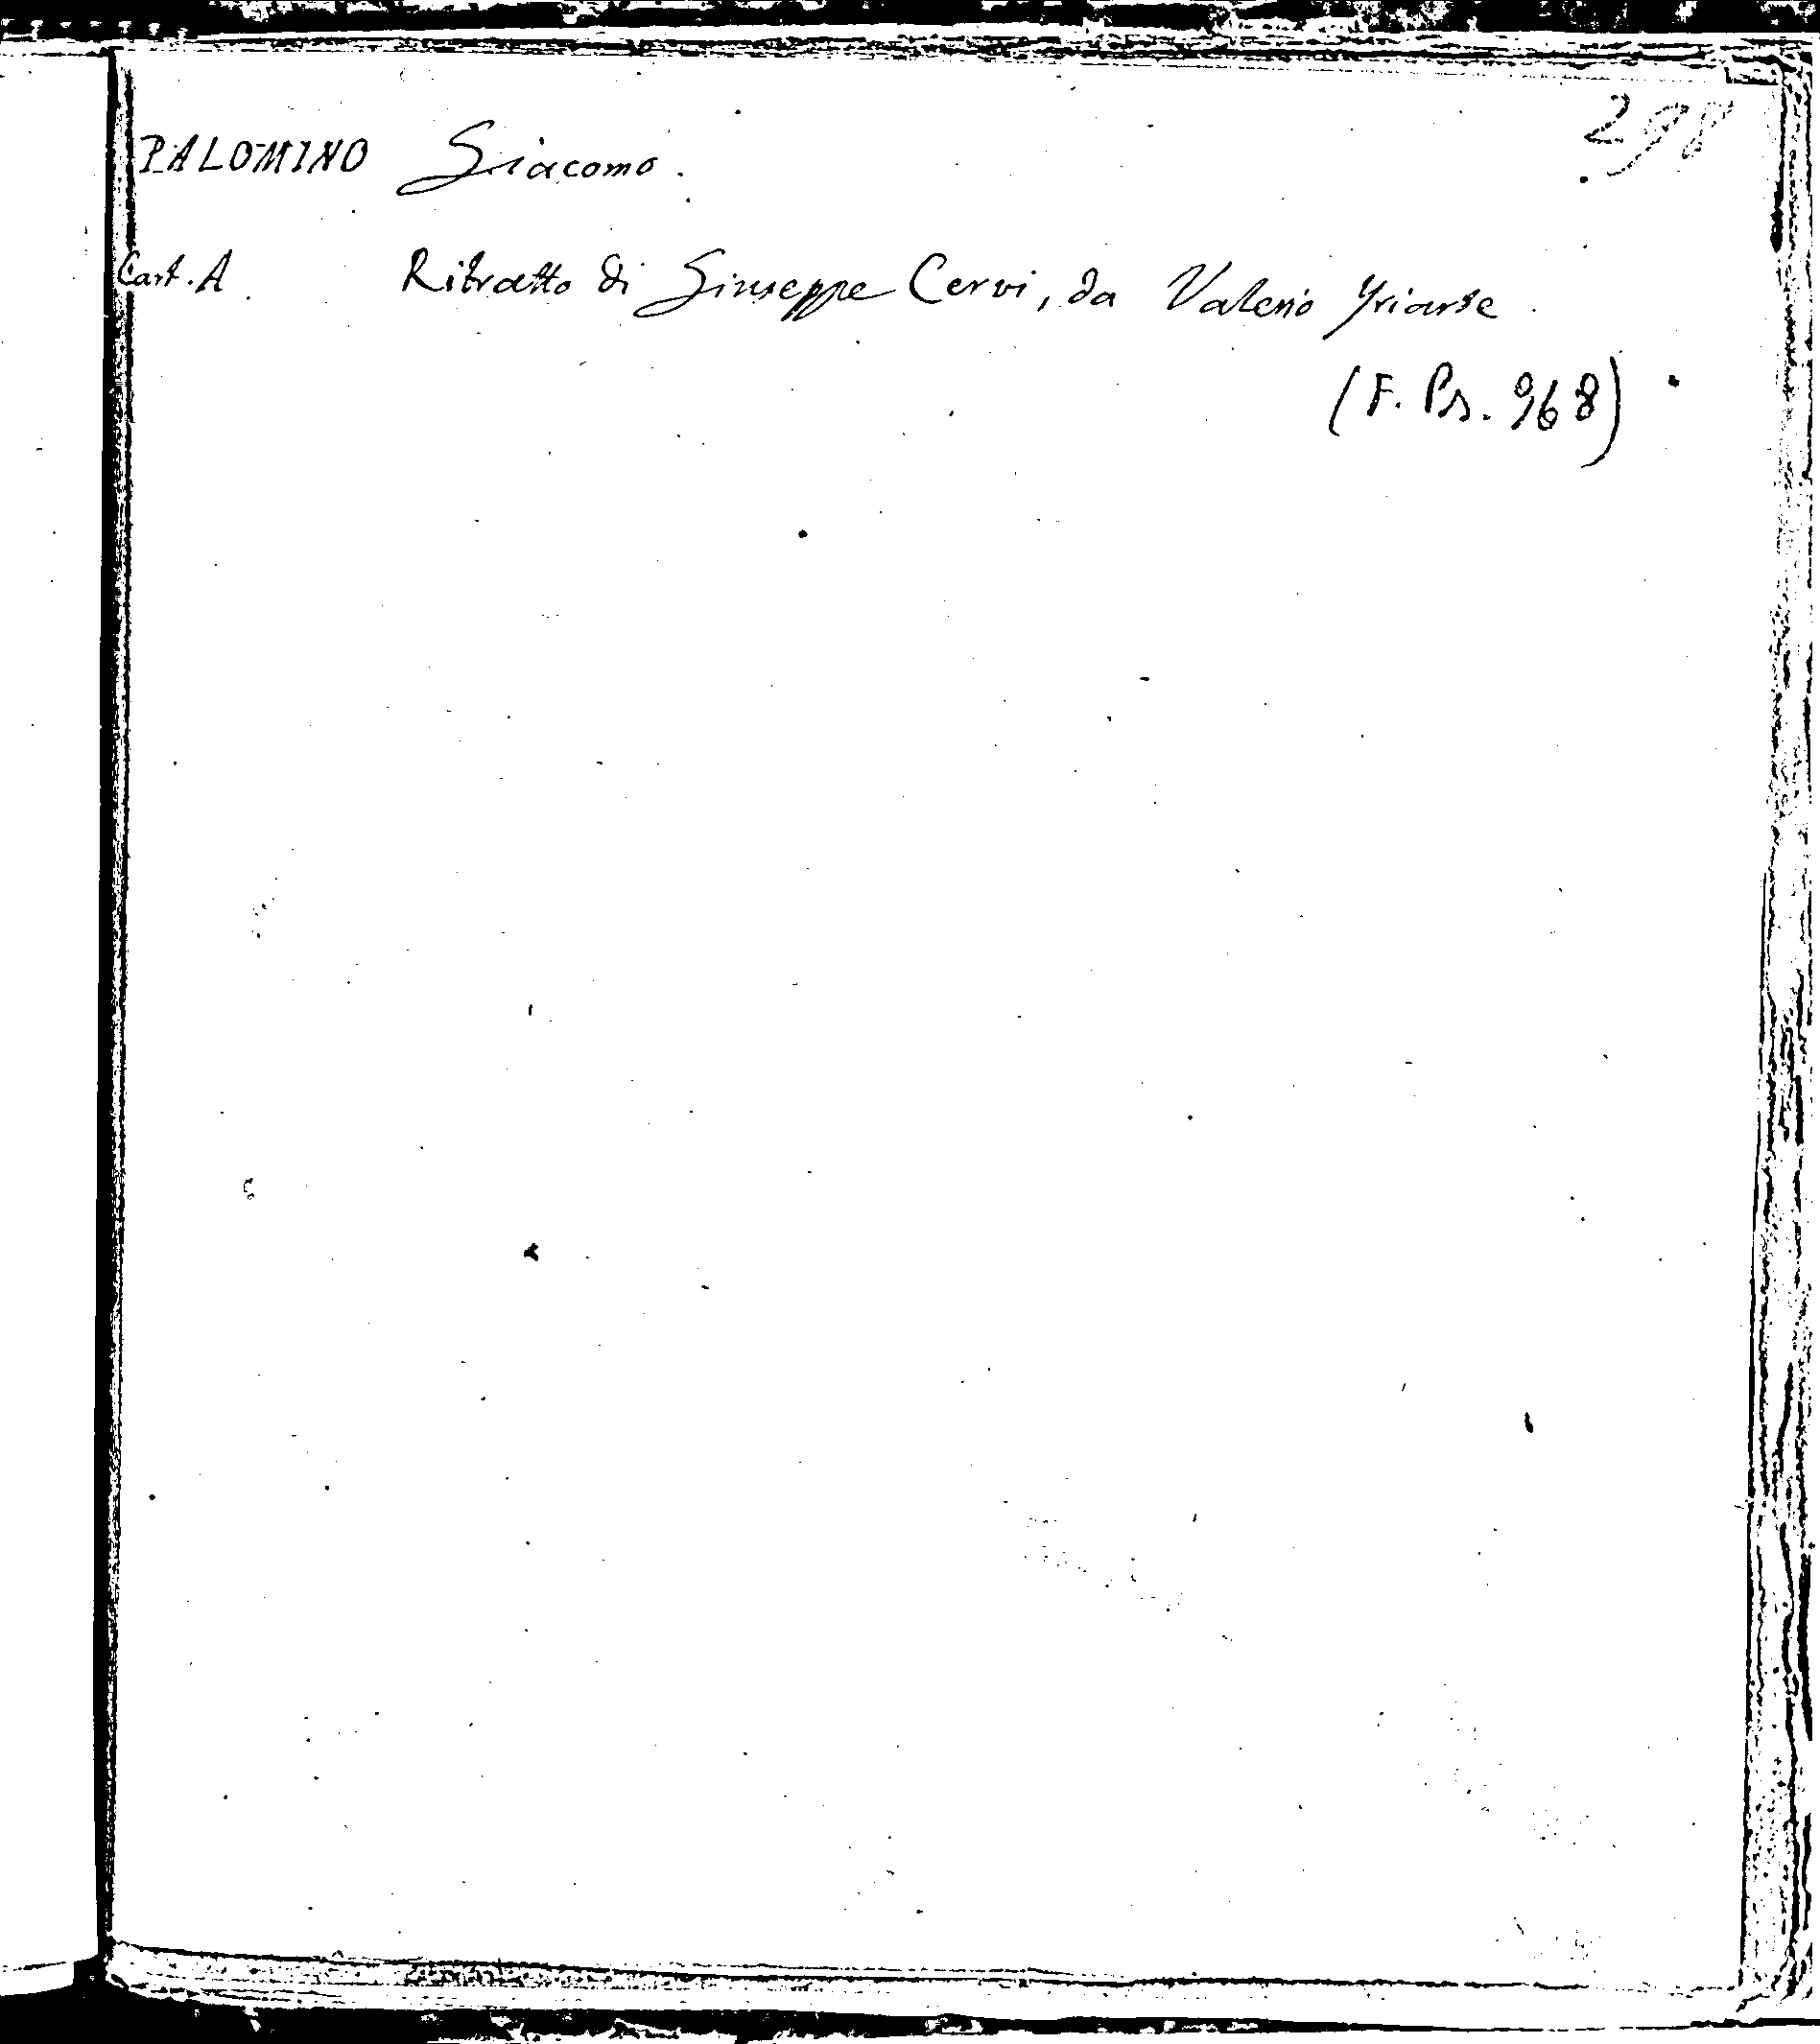 298
PALOMINO Giacomo.
Cart. A Ritratto di Giuseppe Cervi, da Valerio Yriarte
(F. Ps. 968)